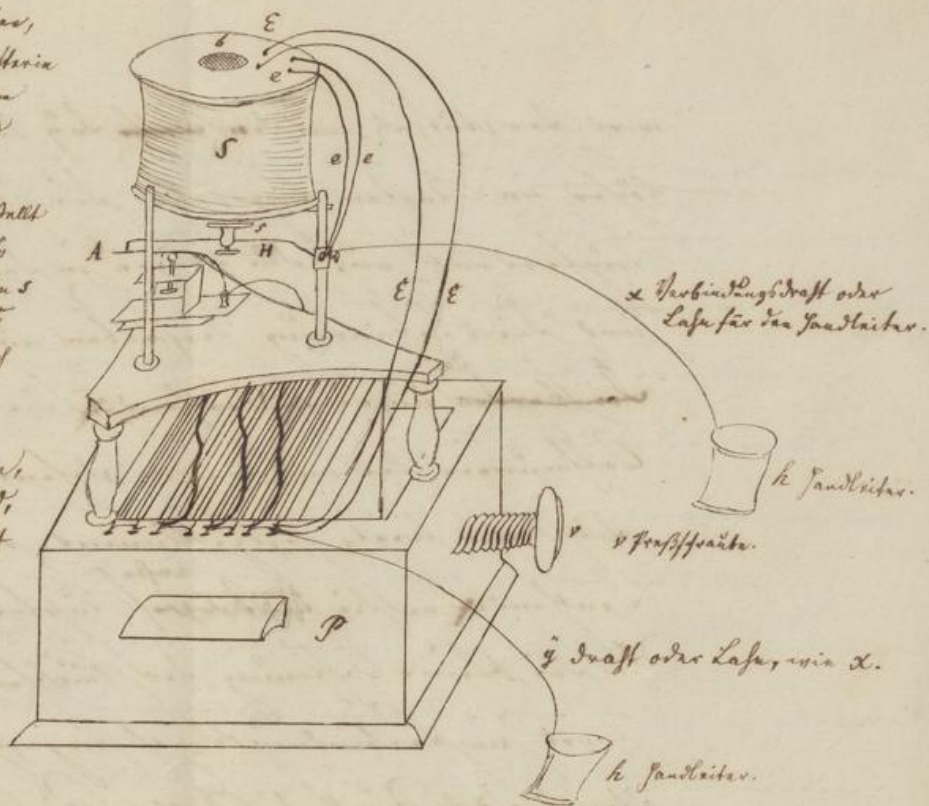 b
E
e
S
e e
s
A
H
E E
x Verbindungsdraht oder
Lahn für den Handleiter.
h Handleiter.
v
v Preßschraube.
P
ÿ draht oder Lahn, wie x.
h Handleiter.